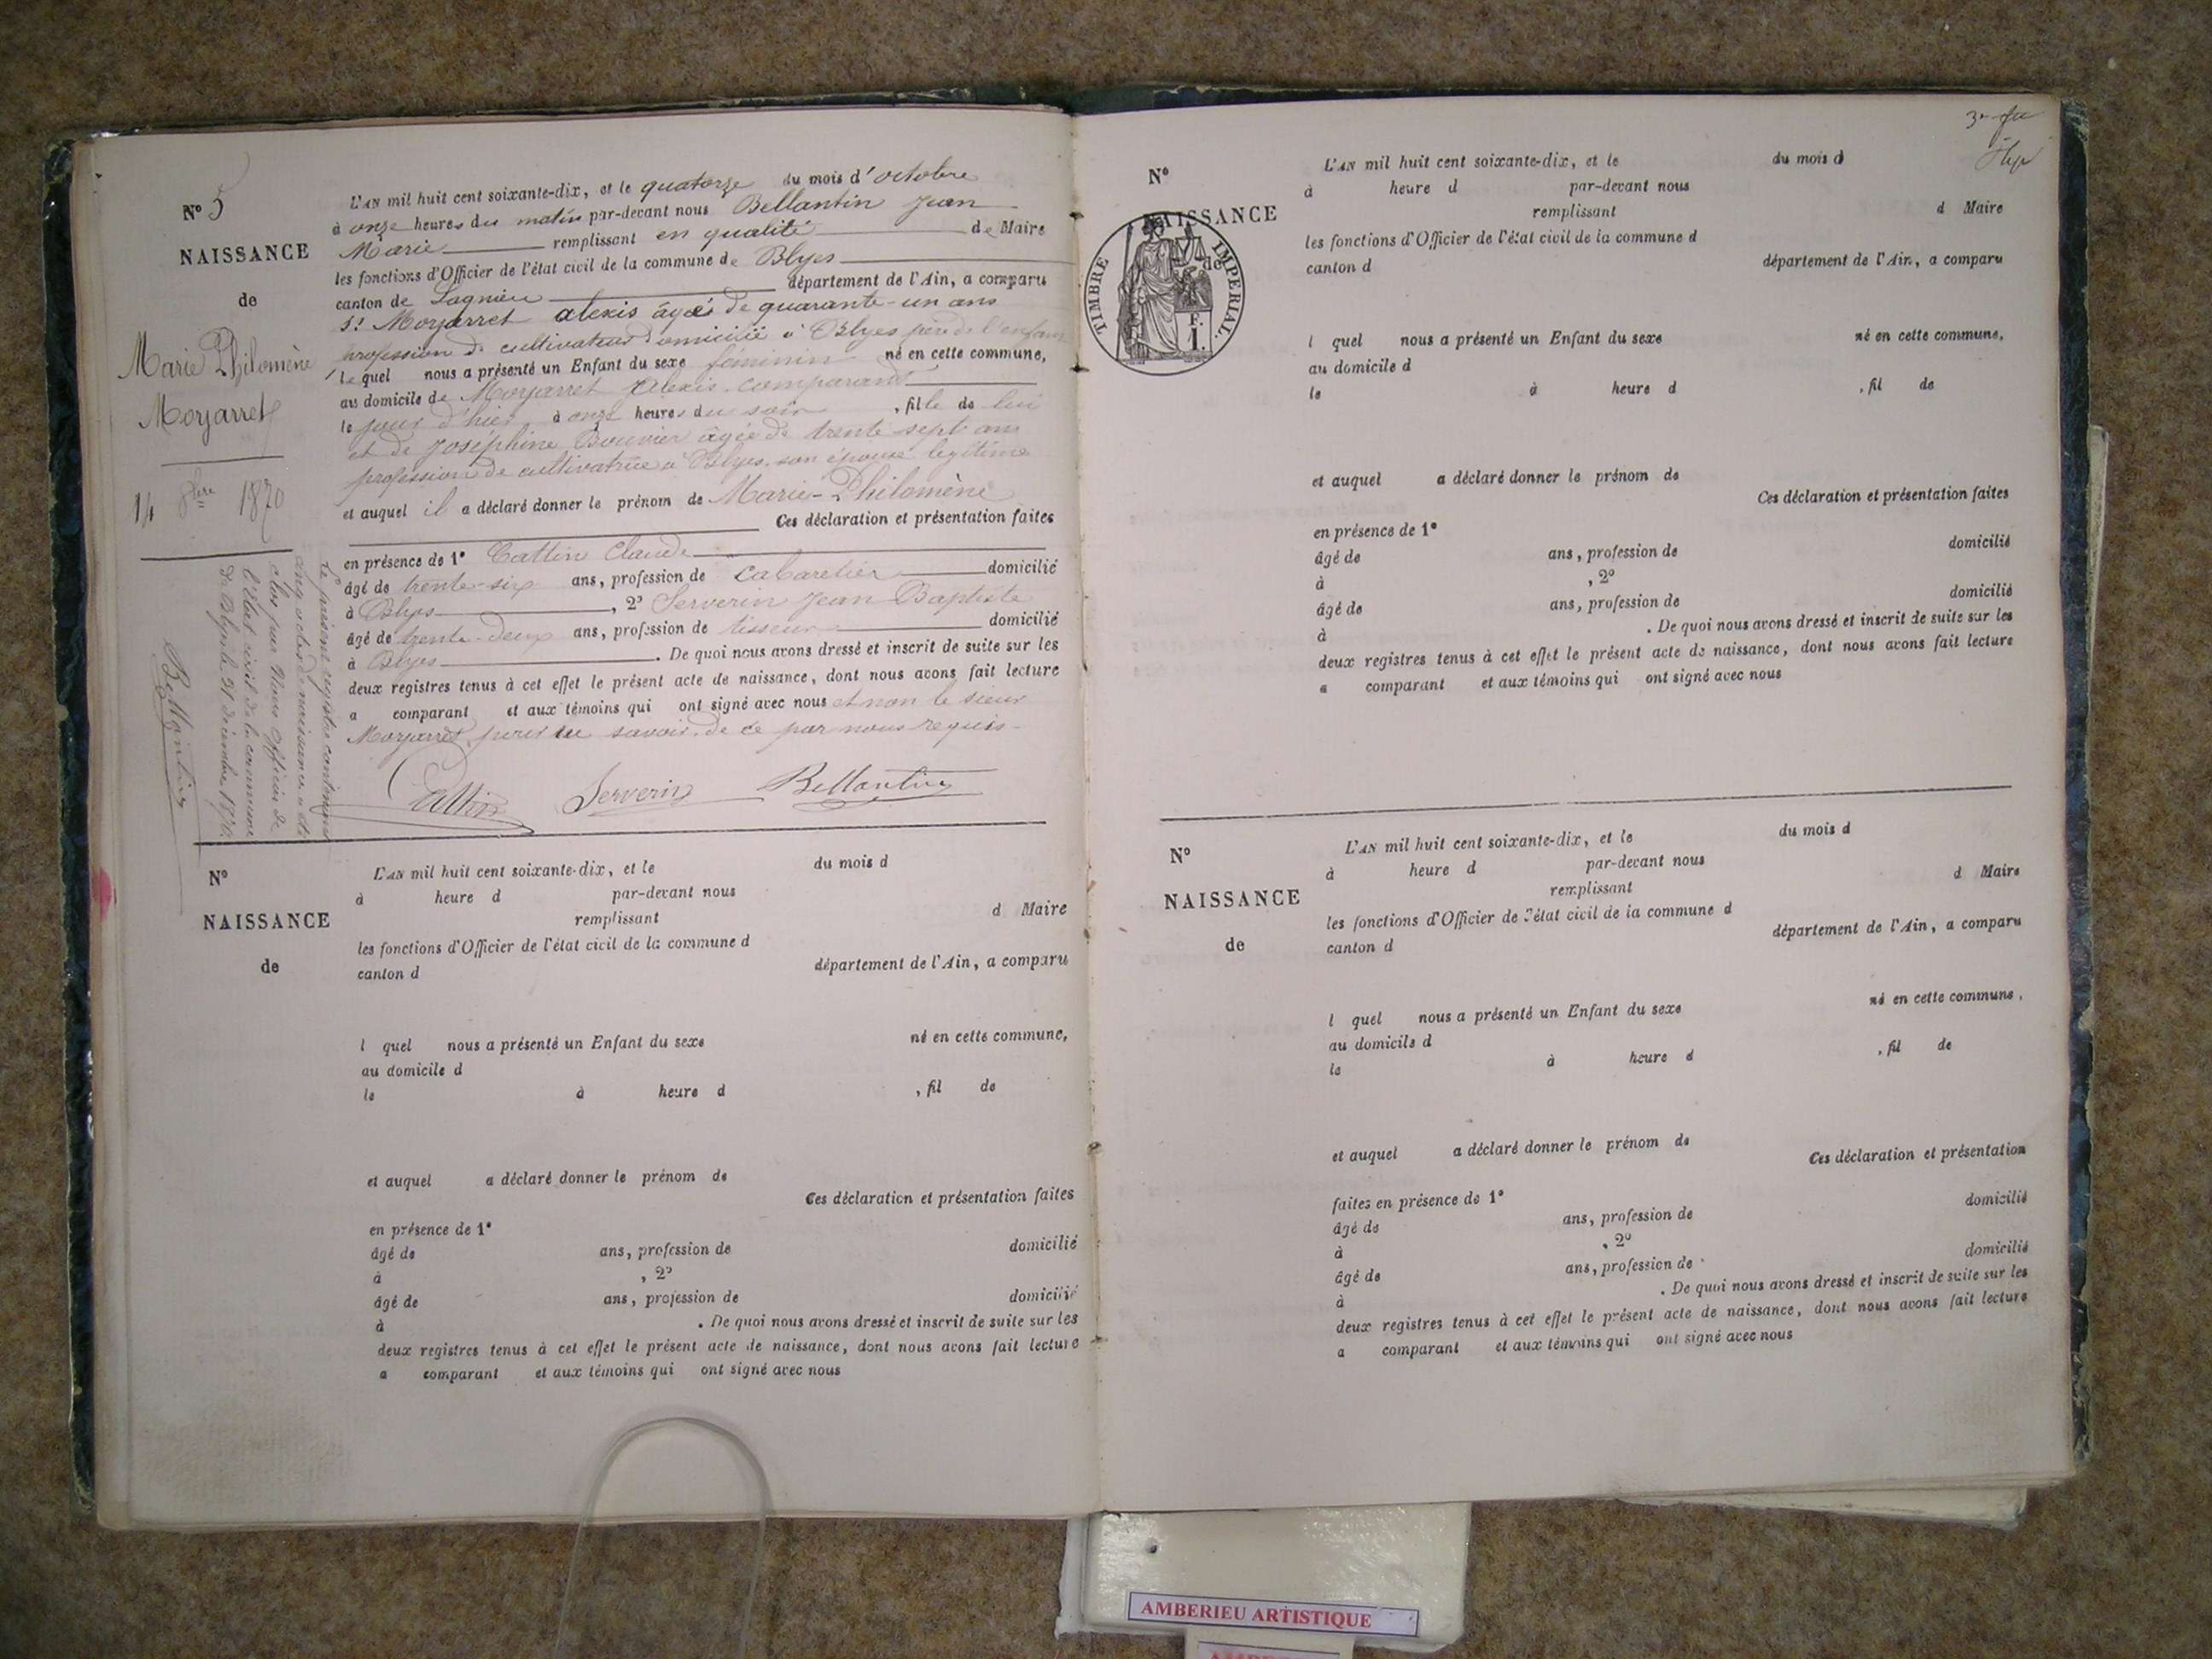 N° 5
NAISSANCE
de
Marie Philomène
Morjarret
14 8bre 1870
L'AN mil huit cent soixante-dix, et le quatorze du mois d'octobre
à onze heures du matin par-devant nous Bellantin Jean
Marie remplissant en qualité de Maire
les fonctions d'Officier de l'état civil de la commune de Blyes
canton de Lagnieu département de l'Ain, a comparu
Sr Morjarret alexis âgés de quarante-un ans
profession de cultivateur domicilié à Blyes père de l'enfant
lequel nous a présenté un Enfant du sexe féminin né en cette commune,
au domicile de Morjarret Alexis comparant
le jour d'hier à onze heures du soir, fille de lui
et de Joséphine Bouvier âgée de trente sept ans
profession de cultivatrice à Blyes, son épouse légitime
et auquel il a déclaré donner le prénom de Marie-Philomène
Ces déclaration et présentation faites
en présence de 1° Cattin Claude
âgé de trente-six ans, profession de Cabaretier domicilié
à Blyes, 2° Serverin Jean Baptiste
âgé de trente-deux ans, profession de tisseur domicilié
à Blyes. De quoi nous avons dressé et inscrit de suite sur les
deux registres tenus à cet effet le présent acte de naissance, dont nous avons fait lecture
a comparant et aux témoins qui ont signé avec nous et non le sieur
Morjarret pour ne savoir, de ce par nous requis
Cattin Serverin Bellantin
Le présent registre contenant
cinq actes de naissance a été
clos par Nous Officier de
l'état civil de la commune
de Blyes le 31 décembre 1870
Bellantin
N°
NAISSANCE
de
L'AN mil huit cent soixante-dix, et le du mois d
à heure d par-devant nous
remplissant d Maire
les fonctions d'Officier de l'état civil de la commune d
canton d département de l'Ain, a comparu
l quel nous a présenté un Enfant du sexe né en cette commune,
au domicile d
le à heure d , fil de
et auquel a déclaré donner le prénom de
Ces déclaration et présentation faites
en présence de 1°
âgé de ans, profession de domicilié
à , 2°
âgé de ans, profession de domicilié
à . De quoi nous avons dressé et inscrit de suite sur les
deux registres tenus à cet effet le présent acte de naissance, dont nous avons fait lecture
a comparant et aux témoins qui ont signé avec nous
N°
NAISSANCE
de
TIMBRE IMPERIAL.
F.
1.
L'AN mil huit cent soixante-dix, et le du mois d
à heure d par-devant nous
remplissant d Maire
les fonctions d'Officier de l'état civil de la commune d
canton d département de l'Ain, a comparu
l quel nous a présenté un Enfant du sexe né en cette commune,
au domicile d
le à heure d , fil de
et auquel a déclaré donner le prénom de
Ces déclaration et présentation faites
en présence de 1°
âgé de ans, profession de domicilié
à , 2°
âgé de ans, profession de domicilié
à . De quoi nous avons dressé et inscrit de suite sur les
deux registres tenus à cet effet le présent acte de naissance, dont nous avons fait lecture
a comparant et aux témoins qui ont signé avec nous
N°
NAISSANCE
de
L'AN mil huit cent soixante-dix, et le du mois d
à heure d par-devant nous
remplissant d Maire
les fonctions d'Officier de l'état civil de la commune d
canton d département de l'Ain, a comparu
l quel nous a présenté un Enfant du sexe né en cette commune,
au domicile d
le à heure d , fil de
et auquel a déclaré donner le prénom de
Ces déclaration et présentation
faites en présence de 1° domicilié
âgé de ans, profession de
à , 2°
âgé de ans, profession de domicilié
à . De quoi nous avons dressé et inscrit de suite sur les
deux registres tenus à cet effet le présent acte de naissance, dont nous avons fait lecture
a comparant et aux témoins qui ont signé avec nous
AMBERIEU ARTISTIQUE